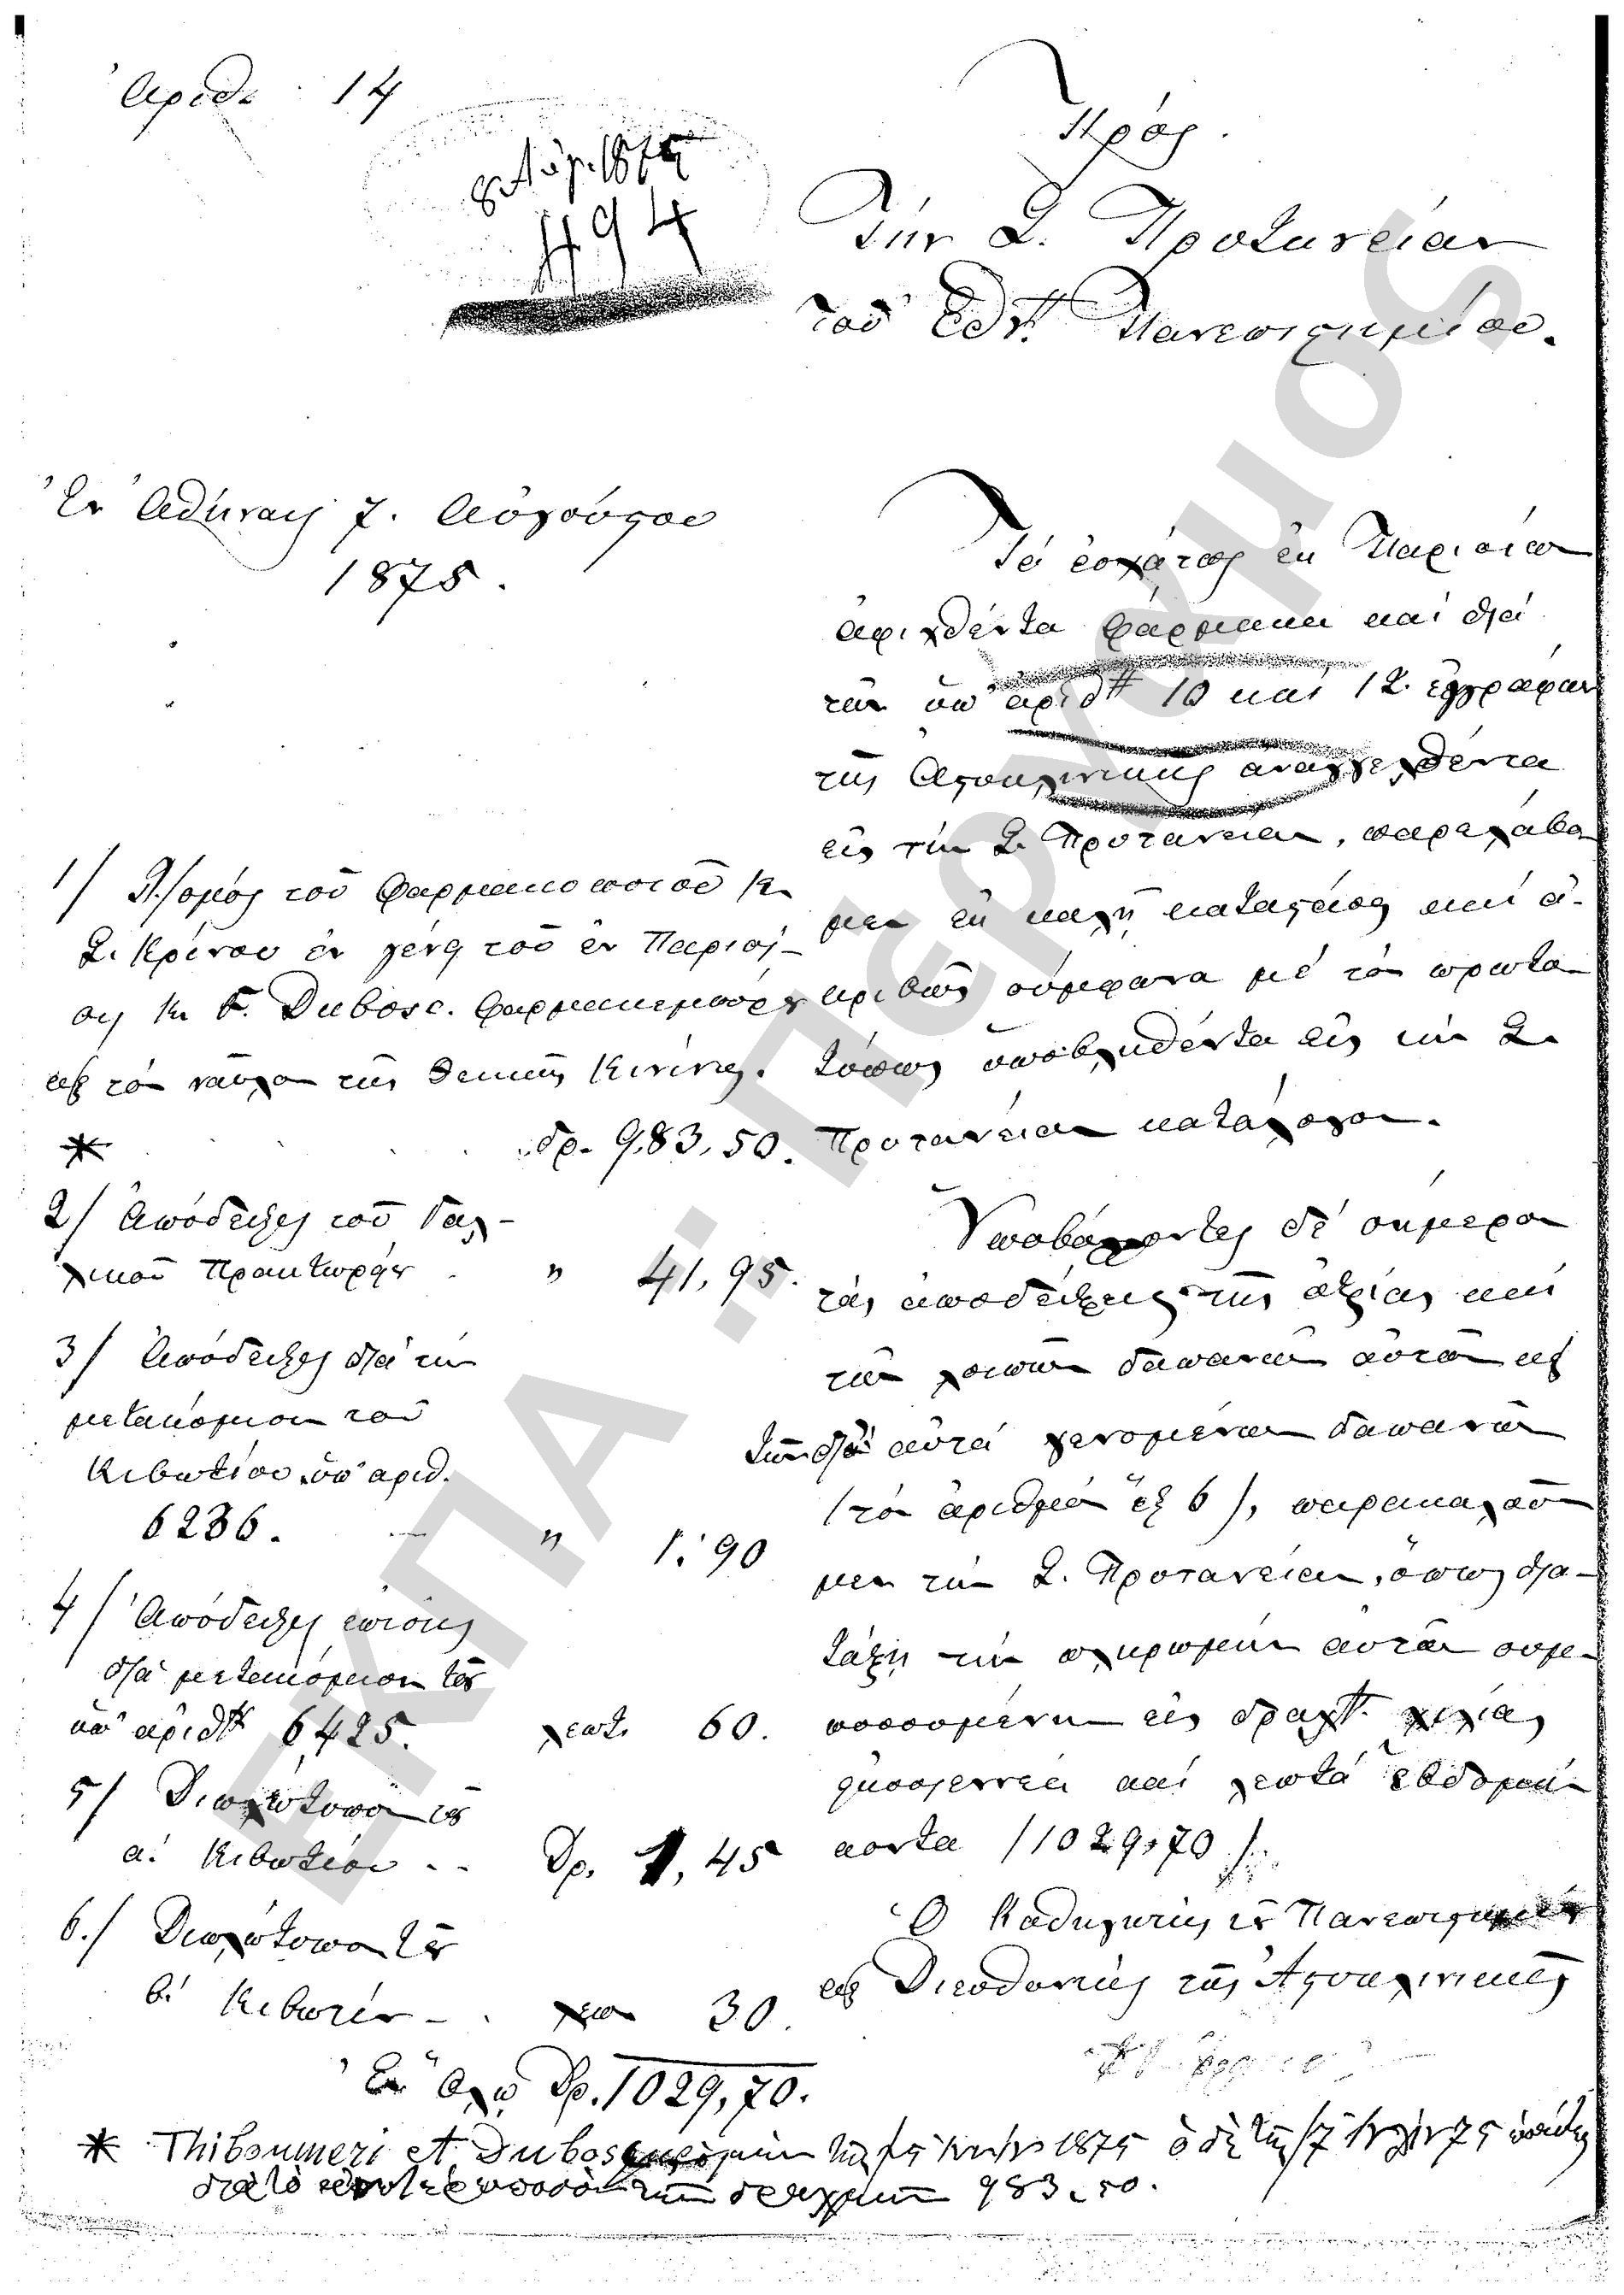 Ἀριθ. 14
8 Αὐγ. 1875
494
Πρός
Τήν Σ. Πρυτανείαν
τοῦ Ἐθν. Πανεπιστημίου.
Ἐν Ἀθήναις 7. Αὐγούστου
1875.
Τά ἐσχάτως ἐκ Παρισίων
ἀφιχθέντα φάρμακα καί διά
τῶν ὑπ' ἀριθ. 10 καί 12. ἐγγράφων
τῆς Ἀστυκλινικῆς ἀναγγελθέντα
εἰς τήν Σ. Πρυτανείαν, παρελάβο
μεν ἐν καλῇ καταστάσει καί ἀ-
κριβῶς σύμφωνα μέ τόν πρωτο
τύπως ὑποβληθέντα εἰς τήν Σ.
Πρυτανείαν κατάλογον.
Ὑποβάλλοντες δέ σήμερον
τάς ἀποδείξεις τῆς ἀξίας καί
τῶν λοιπῶν δαπανῶν αὐτῶν καί
τῶν δι' αὐτά γενομένων δαπανῶν
(τόν ἀριθμόν ἕξ 6), παρακαλοῦ
μεν τήν Σ. Πρυτανείαν, ὅπως δια-
τάξῃ τήν πληρωμήν αὐτῶν συμ-
ποσουμένην εἰς δραχ. χιλίας
εἰκοσιεννέα καί λεπτά ἑβδομή
κοντα (1029,70).
Ὁ Καθηγητής τοῦ Πανεπιστημίου
καί Διευθυντής τῆς Ἀστυκλινικῆς
1/ Λ/σμός τοῦ φαρμακοποιοῦ Κ.
Σ. Κρίνου ἐν μέρει τοῦ ἐν Παρισί-
οις Κ. F. Dubosc. φαρμακεμπόρου
καί τόν ναῦλον τῆς θειικῆς Κινίνης.
* δρ. 983,50.
2/ Ἀπόδειξις τοῦ Γαλ-
λικοῦ Πρακτωρείου " 41,95.
3/ Ἀπόδειξις διά τήν
μετακόμισιν τοῦ
Κιβωτίου ὑπ' ἀριθ.
6236. " 1.90
4/ Ἀπόδειξις ἐπίσης
διά μετακόμισιν τοῦ
ὑπ' ἀριθ. 6425. λεπτ. 60.
5/ Διπλότυπον τοῦ
α. Κιβωτίου .. Δρ. 1,45
6./ Διπλότυπον τοῦ
β. Κιβωτίου - . λεπ 30.
Ἐν ὅλῳ Δρ. 1029,70.
* Thiboumery et Dubosc 1875 ὁ δὲ τῆς 17
διὰ τὸ ποσὸν τῶν δραχμῶν 983,50.